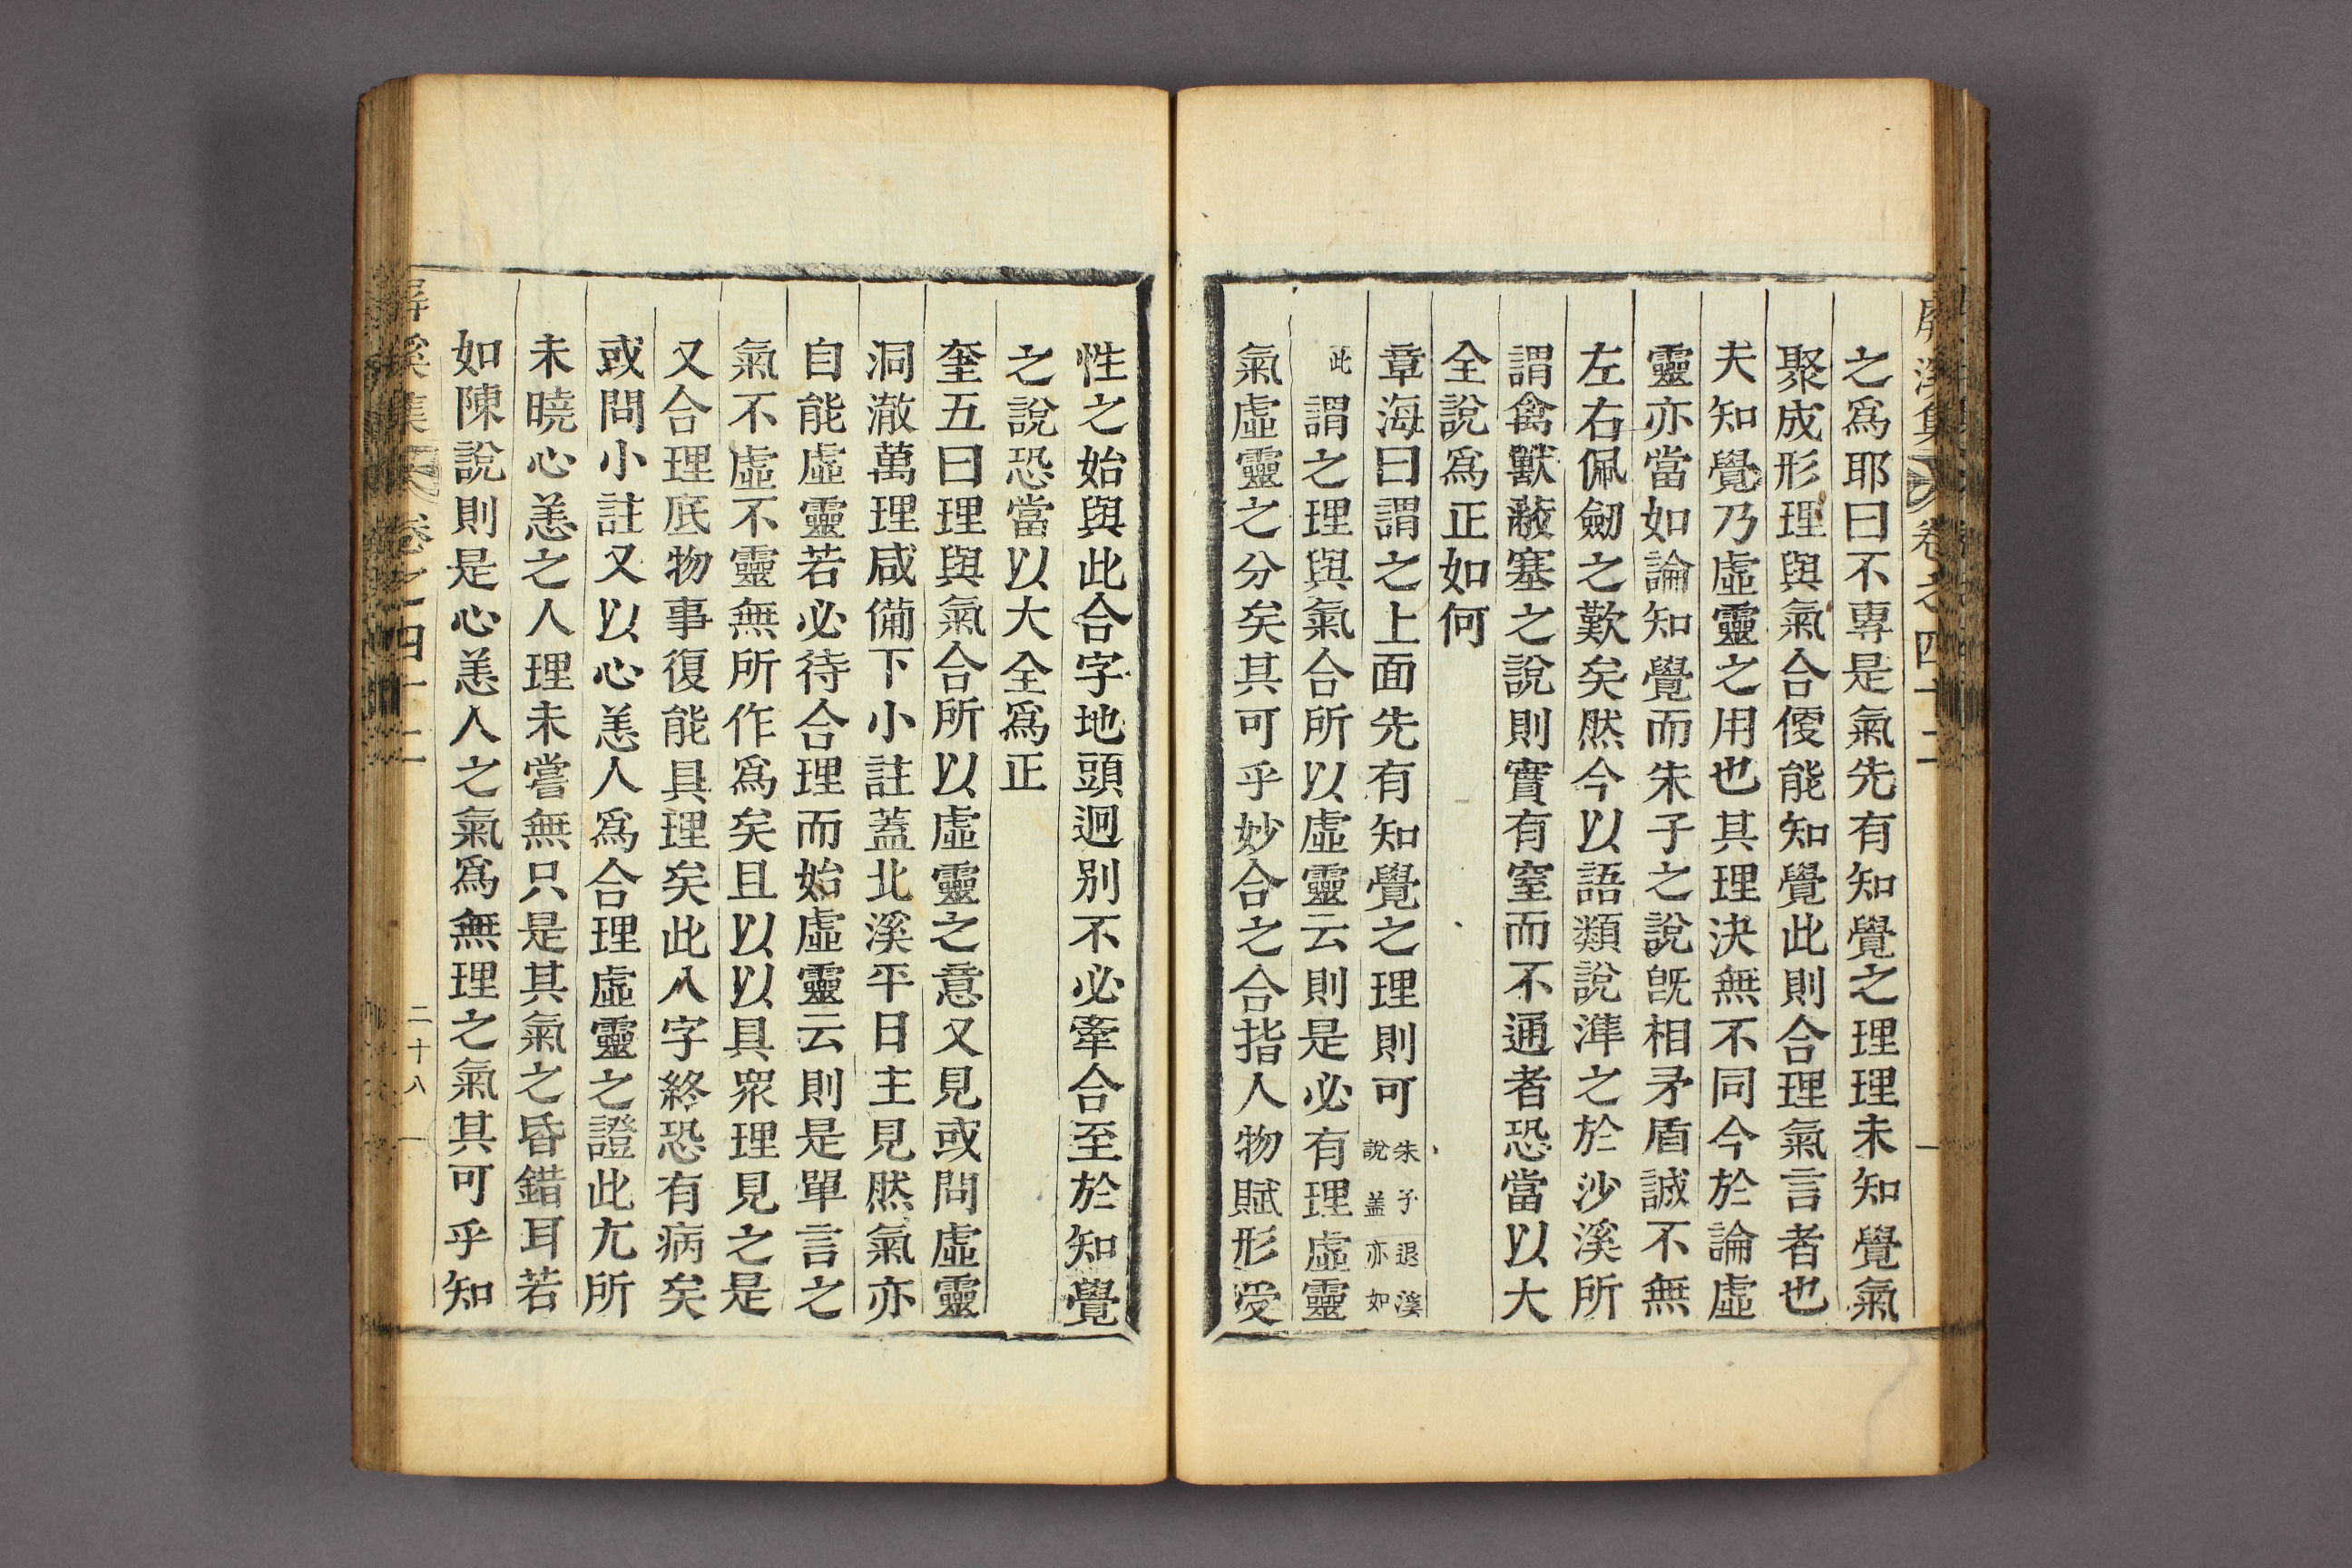 屏溪集 卷之四十二
之爲耶曰不專是氣先有知覺之理理未知覺氣
聚成形理與氣合便能知覺此則合理氣言者也
夫知覺乃虛靈之用也其理決無不同今於論虛
靈亦當如論知覺而朱子之說旣相矛盾誠不無
左右佩劒之歎矣然今以語類說準之於沙溪所
謂禽獸蔽塞之說則實有窒而不通者恐當以大
全說爲正如何
章海曰謂之上面先有知覺之理則可朱子退溪說盖亦如
此謂之理與氣合所以虛靈云則是必有理虛靈
氣虛靈之分矣其可乎妙合之合指人物賦形受
性之始與此合字地頭迥別不必牽合至於知覺
之說恐當以大全爲正
奎五曰理與氣合所以虛靈之意又見或問虛靈
洞澈萬理咸備下小註蓋北溪平日主見然氣亦
自能虛靈若必待合理而始虛靈云則是單言之
氣不虛不靈無所作爲矣且以以具衆理見之是
又合理底物事復能具理矣此人字終恐有病矣
或問小註又以心恙人爲合理虛靈之證此尤所
未曉心恙之人理未嘗無只是其氣之昏錯耳若
如陳說則是心恙人之氣爲無理之氣其可乎知
屏溪集 卷之四十二 二十八